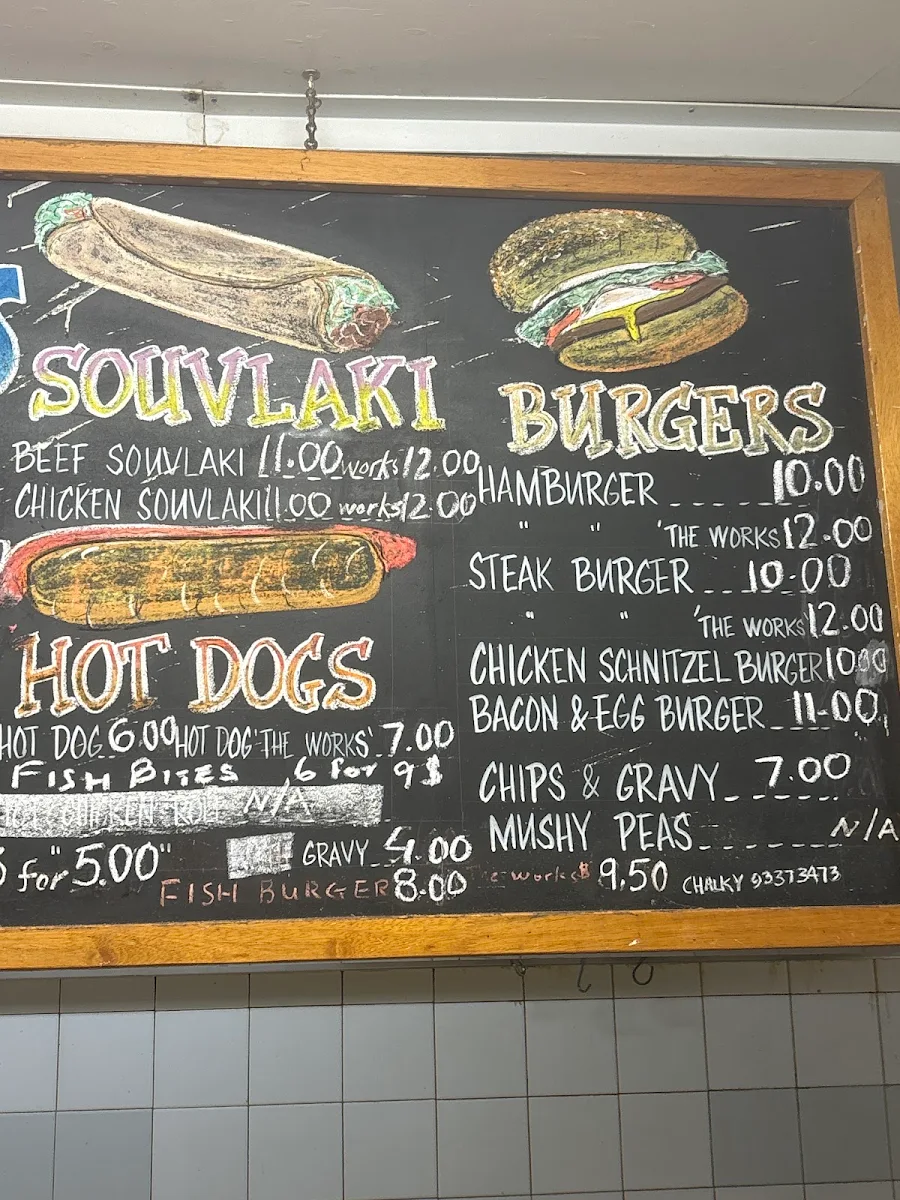 SOUVLAKI
BEEF SOUVLAKI 11.00 works 12.00
CHICKEN SOUVLAKI 11.00 works 12.00
HOT DOGS
HOT DOG 6.00 HOT DOG 'THE WORKS' 7.00
FISH BITES 6 for 9$
CHICKEN ROLL N/A
for "5.00"
GRAVY 4.00
FISH BURGER 8.00 the works $9.50
BURGERS
HAMBURGER 10.00
" " 'THE WORKS 12.00
STEAK BURGER 10.00
" " 'THE WORKS 12.00
CHICKEN SCHNITZEL BURGER 10.00
BACON & EGG BURGER 11.00
CHIPS & GRAVY 7.00
MUSHY PEAS N/A
CHALKY 93373473